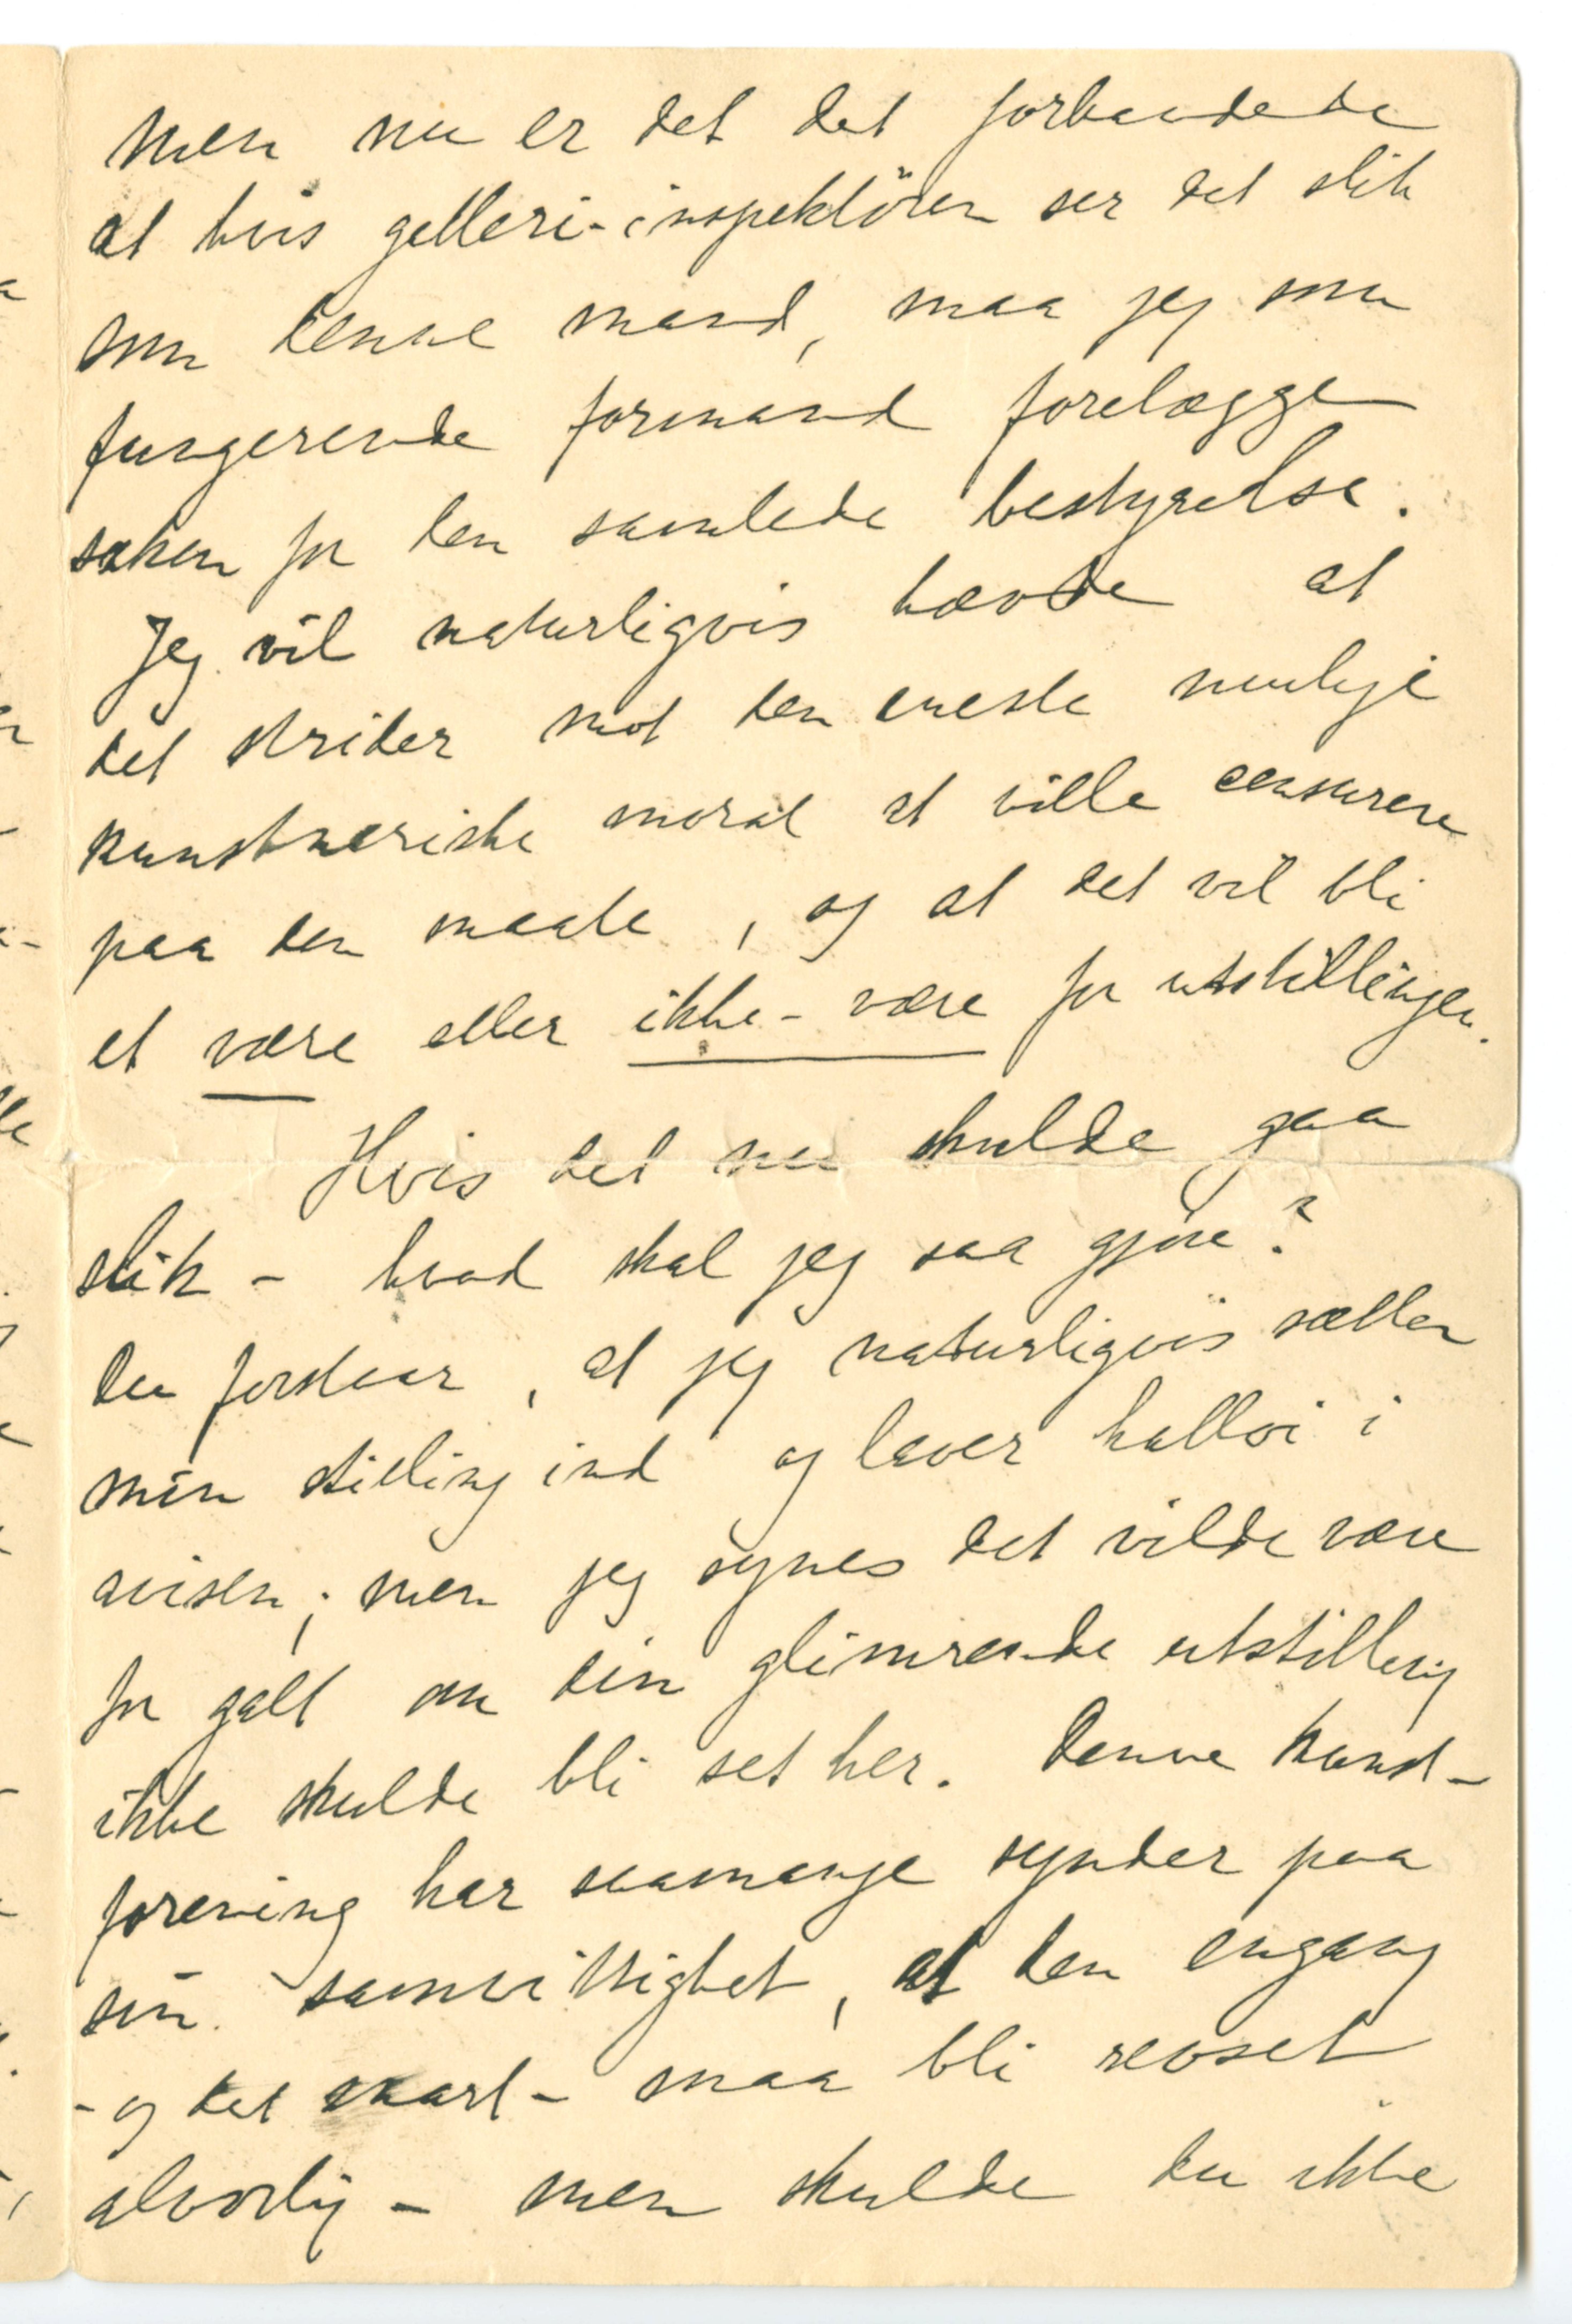 Men nu er det det forbandede
at hvis galleri-inspektören ser det slik
som denne mand, maa jeg som
fungerende formand forelægge
saken for den samlede bestyrelse.
Jeg vil naturligvis hævde at
det strider mot den eneste mulige
kunstneriske moral at ville censurere
paa den maate, og at det vil bli
et være eller ikke-være for utstillingen.
Hvis det nu skulde gaa
slik – hvad skal jeg saa gjøre?
Du forstaar, at jeg naturligvis sætter
min stilling ind og laver halloi i
avisen; men jeg synes det vilde være
for galt om din glimrende utstilling
ikke skulde bli set her. Denne kunst-
forening har saamange synder paa
sin samvittighet, at den engang
- og det snart - maa bli revset
alvorlig – men skulde du ikke